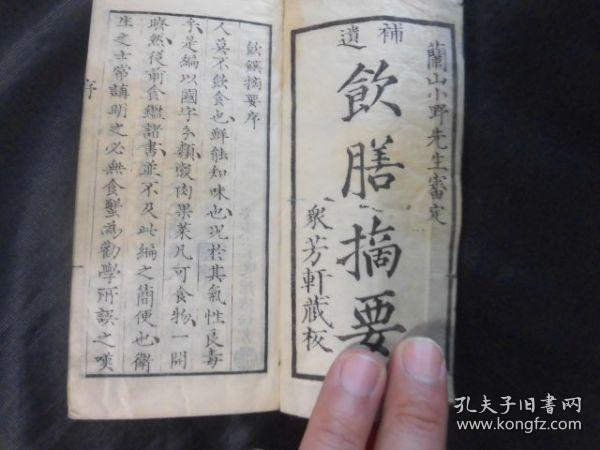 蘭山小野先生審定
補遺
飲膳摘要
衆芳軒藏板
飲饌摘要序
人莫不飲食也鮮能知味也况於其氣性良毒
乎是編以國字分類穀肉果菜凡可食物一開
瞭然從前食鑑諸書並不及此編之簡便也衛
生之士常講明之必無食蟹為勸學所誤之嘆
序
孔夫子旧书网
www.kongfz.com